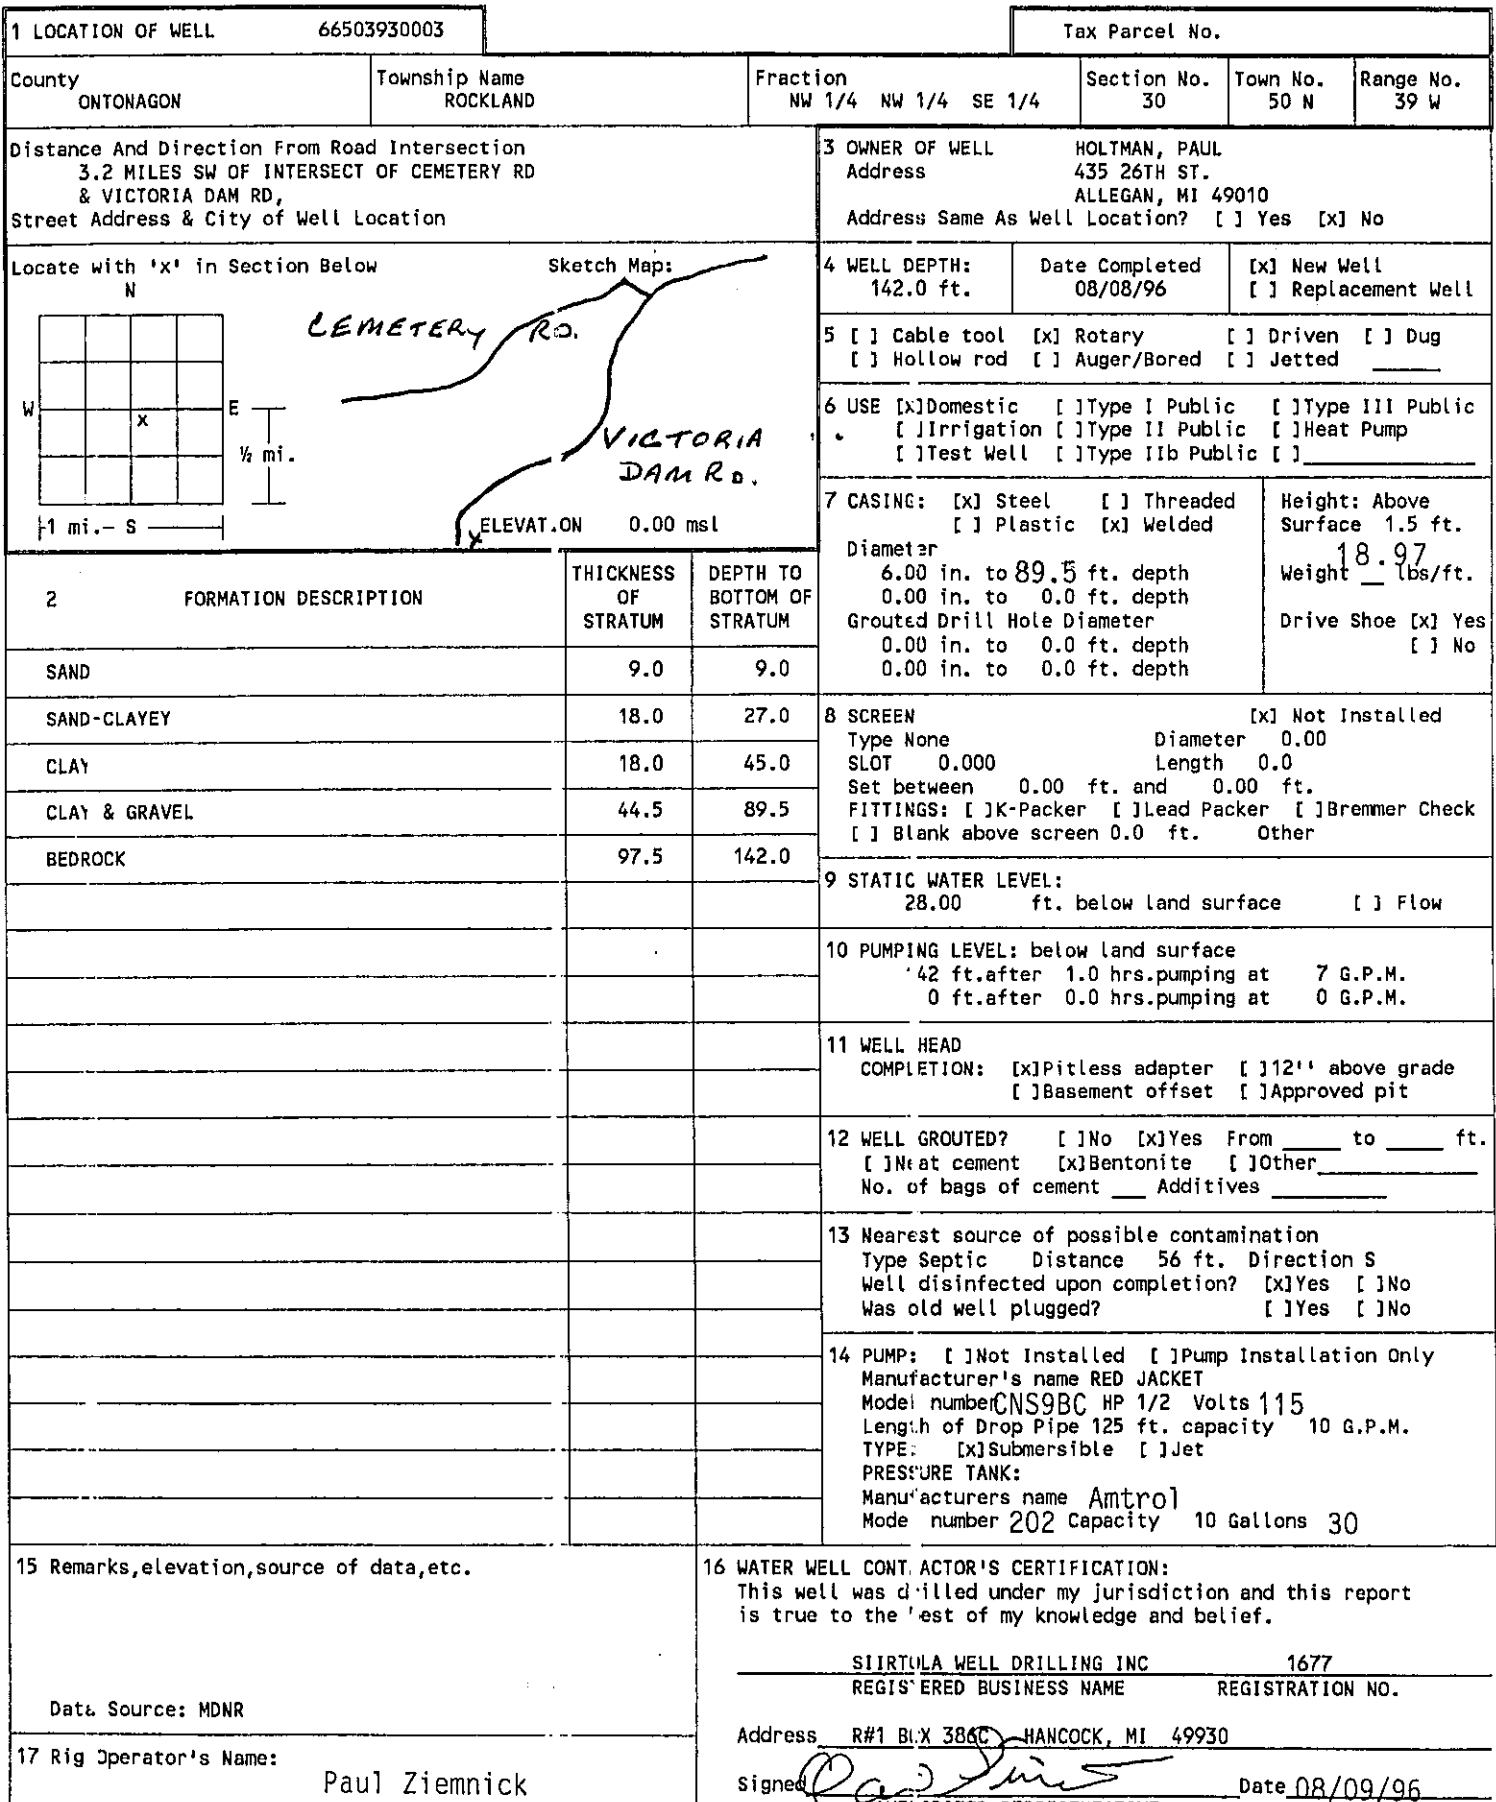 1 LOCATION OF WELL 66503930003
Tax Parcel No.
County
ONTONAGON
Township Name
ROCKLAND
Fraction
NW 1/4 NW 1/4 SE 1/4
Section No.
30
Town No.
50 N
Range No.
39 W
Distance And Direction From Road Intersection
3.2 MILES SW OF INTERSECT OF CEMETERY RD
& VICTORIA DAM RD,
Street Address & City of Well Location
3 OWNER OF WELL HOLTMAN, PAUL
Address 435 26TH ST.
ALLEGAN, MI 49010
Address Same As Well Location? [ ] Yes [x] No
Locate with 'x' in Section Below Sketch Map:
N
W
x
E
½ mi.
1 mi.- S
CEMETERY RD.
VICTORIA
DAM RD.
x
ELEVAT.ON 0.00 msl
4 WELL DEPTH:
142.0 ft.
Date Completed
08/08/96
[x] New Well
[ ] Replacement Well
5 [ ] Cable tool [x] Rotary [ ] Driven [ ] Dug
[ ] Hollow rod [ ] Auger/Bored [ ] Jetted
6 USE [x]Domestic [ ]Type I Public [ ]Type III Public
[ ]Irrigation [ ]Type II Public [ ]Heat Pump
[ ]Test Well [ ]Type IIb Public [ ]
7 CASING: [x] Steel [ ] Threaded
[ ] Plastic [x] Welded
Diameter
6.00 in. to 89.5 ft. depth
0.00 in. to 0.0 ft. depth
Grouted Drill Hole Diameter
0.00 in. to 0.0 ft. depth
0.00 in. to 0.0 ft. depth
Height: Above
Surface 1.5 ft.
18.97
Weight lbs/ft.
Drive Shoe [x] Yes
[ ] No
2 FORMATION DESCRIPTION
THICKNESS
OF
STRATUM
DEPTH TO
BOTTOM OF
STRATUM
SAND 9.0 9.0
SAND-CLAYEY 18.0 27.0
CLAY 18.0 45.0
CLAY & GRAVEL 44.5 89.5
BEDROCK 97.5 142.0
8 SCREEN [x] Not Installed
Type None Diameter 0.00
SLOT 0.000 Length 0.0
Set between 0.00 ft. and 0.00 ft.
FITTINGS: [ ]K-Packer [ ]Lead Packer [ ]Bremmer Check
[ ] Blank above screen 0.0 ft. Other
9 STATIC WATER LEVEL:
28.00 ft. below land surface [ ] Flow
10 PUMPING LEVEL: below land surface
'42 ft.after 1.0 hrs.pumping at 7 G.P.M.
0 ft.after 0.0 hrs.pumping at 0 G.P.M.
11 WELL HEAD
COMPLETION: [x]Pitless adapter [ ]12'' above grade
[ ]Basement offset [ ]Approved pit
12 WELL GROUTED? [ ]No [x]Yes From to ft.
[ ]Neat cement [x]Bentonite [ ]Other
No. of bags of cement Additives
13 Nearest source of possible contamination
Type Septic Distance 56 ft. Direction S
Well disinfected upon completion? [x]Yes [ ]No
Was old well plugged? [ ]Yes [ ]No
14 PUMP: [ ]Not Installed [ ]Pump Installation Only
Manufacturer's name RED JACKET
Model number CNS9BC HP 1/2 Volts 115
Length of Drop Pipe 125 ft. capacity 10 G.P.M.
TYPE: [x]Submersible [ ]Jet
PRESSURE TANK:
Manufacturers name Amtrol
Mode number 202 Capacity 10 Gallons 30
15 Remarks,elevation,source of data,etc.
Data Source: MDNR
17 Rig Operator's Name:
Paul Ziemnick
16 WATER WELL CONT ACTOR'S CERTIFICATION:
This well was drilled under my jurisdiction and this report
is true to the best of my knowledge and belief.
SIIRTOLA WELL DRILLING INC 1677
REGISTERED BUSINESS NAME REGISTRATION NO.
Address R#1 BOX 386C HANCOCK, MI 49930
Signed Date 08/09/96